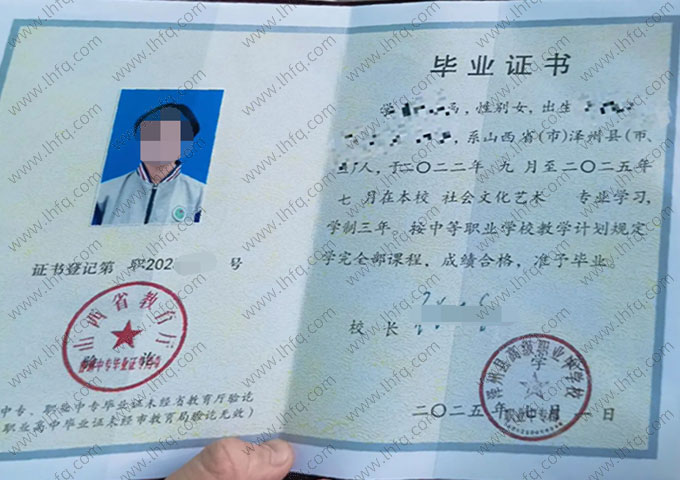 毕业证书
学 , 性别女, 出生
, 系山西省(市)泽州县(市
人, 于二〇二二年 九 月至二〇二五年
七 月在本校 社会文化艺术 专业学习,
学制三年。按中等职业学校教学计划规定
学完全部课程, 成绩合格, 准予毕业。
校 长
泽州县高级职业中学校
职业中专
二〇二五年七月一日
证书登记第 职202 号
山西省教育厅
中专毕业证
中专、职业中专毕业证未经省教育厅验讫
职业高中毕业证未经市教育局验讫无效)
www.lhfq.com